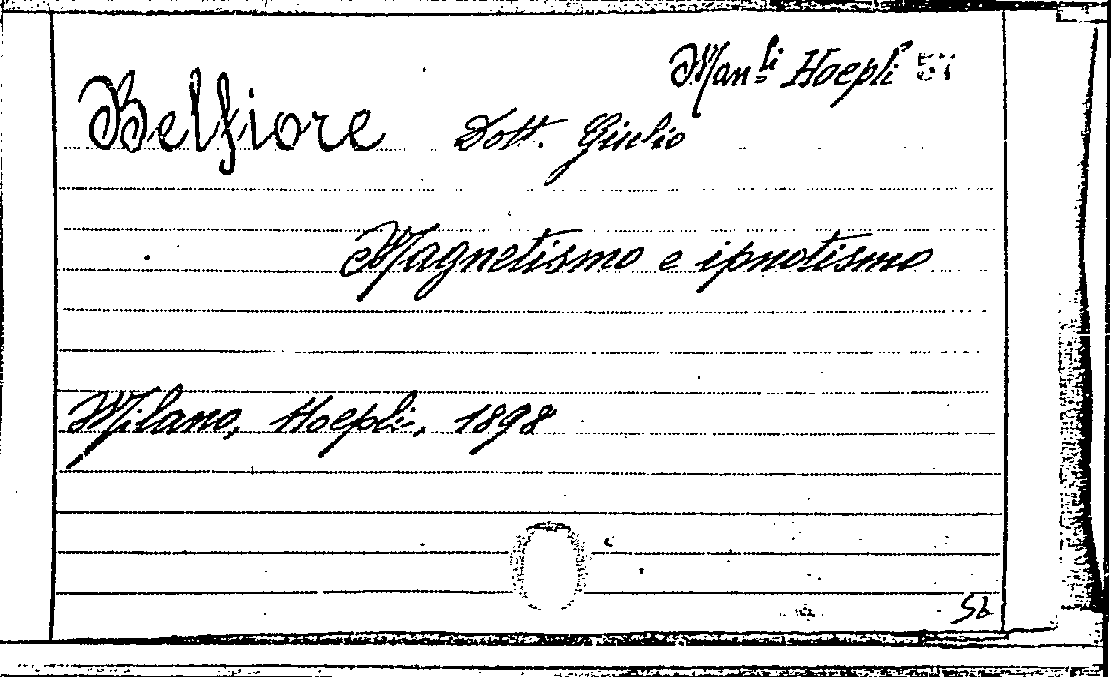 Man.li Hoepli 57
Belfiore Dott. Giulio
Magnetismo e ipnotismo
Milano, Hoepli, 1898